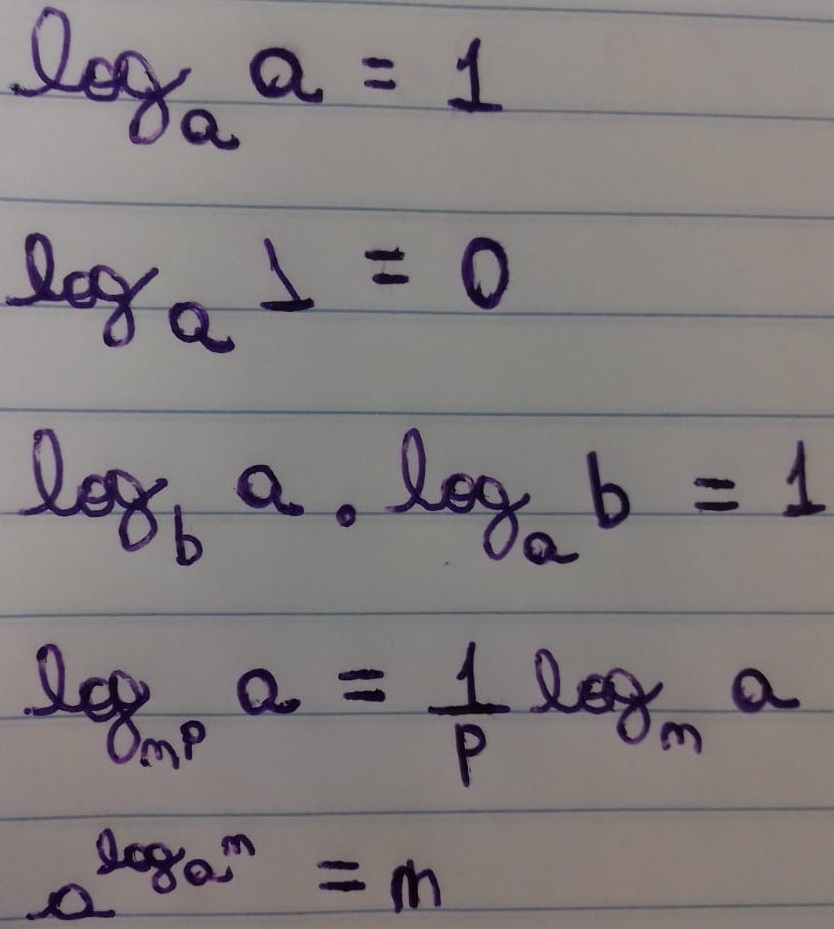 logₐ a = 1
logₐ 1 = 0
log_b a . logₐ b = 1
log_{m^p} a = 1/p log_m a
a^{logₐ m} = m